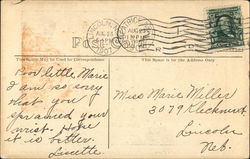 LINCOLN
AUG 25
AUG 25
This Space May be Used for Correspondence
This Space is for the Address Only
Poor little Marie
I am so sorry
that you
sprained your
wrist. Hope
it is better.
Lucette
Miss Marie Miller
3079
Lincoln
Neb.